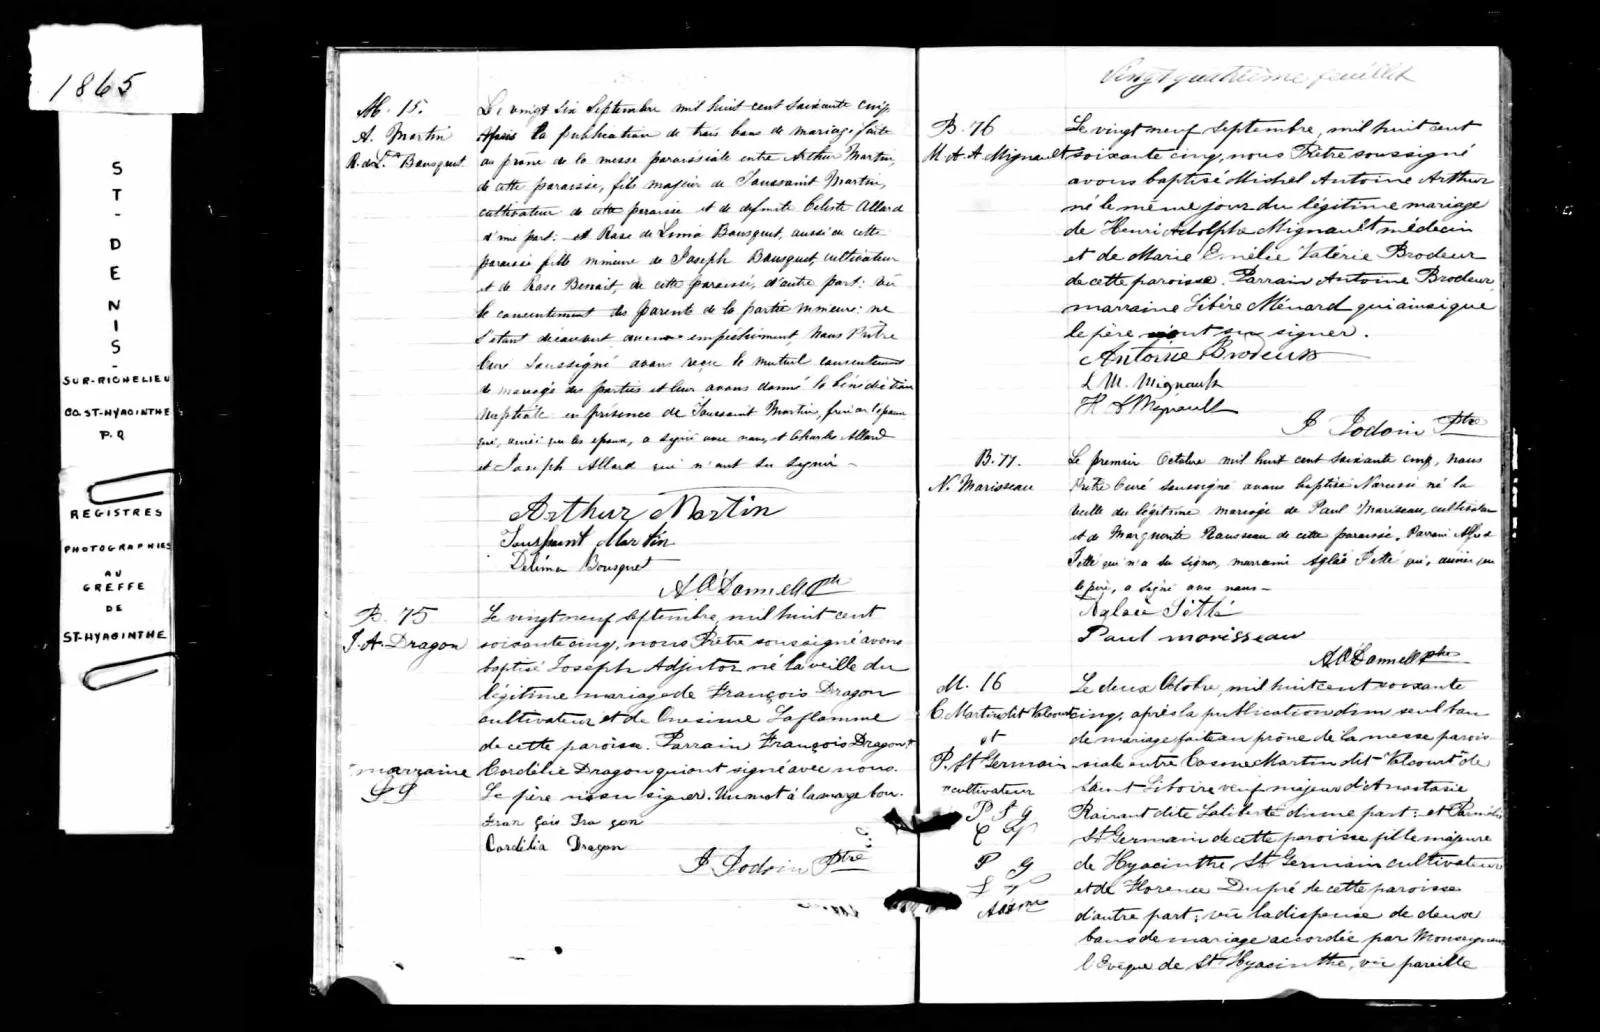 1865
ST-DENIS-
SUR-RICHELIEU
CO. ST-HYACINTHE
P.Q
REGISTRES
PHOTOGRAPHIES
AU
GREFFE
DE
ST-HYACINTHE
M. 15.
A. Martin
R. de L. Bousquet
Le vingt six Septembre mil huit cent soixante cinq,
après la publication de trois bans de mariage faite
au prône de la messe paroissiale entre Arthur Martin,
de cette paroisse, fils majeur de Toussaint Martin,
cultivateur de cette paroisse et de défunte Celeste Allard
d'une part: et Rose de Lima Bousquet, aussi de cette
paroisse fille mineure de Joseph Bousquet, cultivateur
et de Rose Benoit, de cette paroisse, d'autre part: vu
le consentement des parents de la partie mineure: ne
s'étant découvert aucun empêchement, Nous Prêtre
Curé soussigné avons reçu le mutuel consentement
de mariage des parties et leur avons donné la bénédiction
nuptiale en présence de Toussaint Martin, père de l'époux
qui, ainsi que les époux, a signé avec nous, et Charles Allard
et Joseph Allard qui n'ont su signer –
Arthur Martin
Toussaint Martin
Délima Bousquet
A. O'Donnell ptr
B. 75
J. A. Dragon
Le vingt neuf septembre, mil huit cent
soixante cinq, nous Prêtre soussigné avons
baptisé Joseph Adjutor né la veille du
légitime mariage de François Dragon
cultivateur et de Onésime Laflamme
de cette paroisse. Parrain François Dragon,
marraine
Cordélie Dragon qui ont signé avec nous.
Le père n'a su signer. Un mot à la marge bon.
Fran çois Dra gon
Cordélia Dragon
J. Jodoin Ptre
Vingt quatrième feuillet
B. 76
M. A. A. Mignault
Le vingt neuf septembre, mil huit cent
soixante cinq, nous Prêtre soussigné
avons baptisé Michel Antoine Arthur
né le même jour du légitime mariage
de Henri Adolphe Mignault médecin
et de Marie Emélie Valérie Brodeur
de cette paroisse. Parrain Antoine Brodeur,
marraine Libère Ménard qui ainsi que
le père ont su signer.
Antoine Brodeur
L M. Mignault
H A Mignault
J. Jodoin Ptre
B. 77.
N. Marisseau
Le premier Octobre mil huit cent soixante cinq, nous
Prêtre Curé soussigné avons baptisé Narcisse né la
veille du légitime mariage de Paul Marisseau, cultivateur
et de Marguerite Rousseau de cette paroisse. Parrain Alfred
Jetté qui n'a su signer, marraine Aglaé Jetté qui, ainsi que
le père, a signé avec nous –
Aglaée Jetté
Paul morisseau
A O'Donnell ptre
M. 16
C Martin dit Valcourt
et
P. St Germain
"cultivateur
P S G
P G
Le deux Octobre, mil huit cent soixante
cinq, après la publication d'un seul ban
de mariage faite au prône de la messe parois
siale entre Cosme Martin dit Valcourt de
Saint Liboire veuf majeur d'Anastasie
Rairant dite Laliberté d'une part: et Pamélie
St Germain de cette paroisse fille majeure
de Hyacinthe St Germain cultivateur
et de Florence Dupré de cette paroisse
d'autre part; vu la dispense de deux
bans de mariage accordée par Monseigneur
l'Evêque de St Hyacinthe, vu pareille